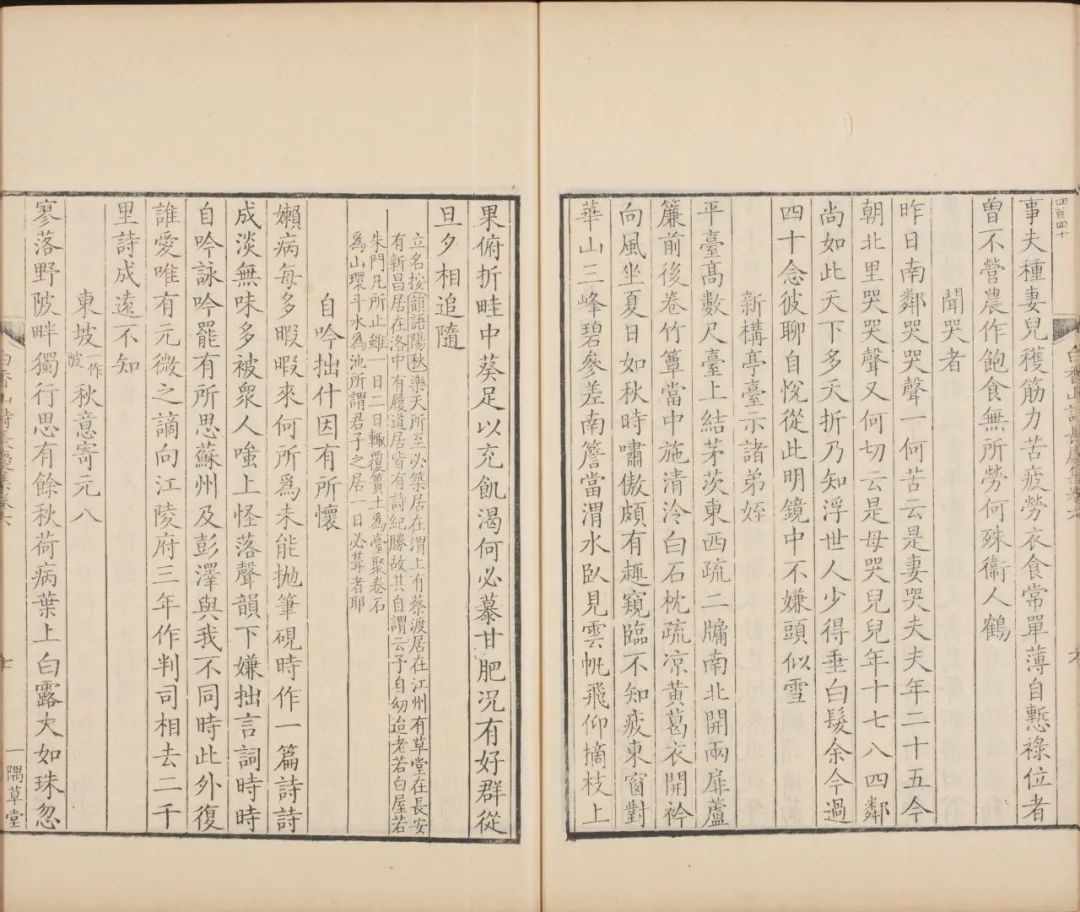 事夫種妻兒穫筋力苦疲勞衣食常單薄自慙祿位者
曾不營農作飽食無所勞何殊衞人鶴
聞哭者
昨日南鄰哭哭聲一何苦云是妻哭夫夫年二十五今
朝北里哭哭聲又何切云是母哭兒兒年十七八四鄰
尚如此天下多夭折乃知浮世人少得垂白髮余今過
四十念彼聊自悅從此明鏡中不嫌頭似雪
新構亭臺示諸弟姪
平臺髙數尺臺上結茅茨東西疏二牖南北開兩扉蘆
簾前後卷竹簟當中施清泠白石枕疏凉黃葛衣開衿
向風坐夏日如秋時嘯傲頗有趣窺臨不知疲東窗對
華山三峰碧參差南簷當渭水臥見雲帆飛仰摘枝上
果俯折畦中葵足以充飢渴何必慕甘肥況有好群從
旦夕相追隨
立名按韻語陽秋樂天所至必築居在渭上有蔡渡居在江州有草堂在長安
有新昌居在洛中有履道居皆有詩紀勝故其自謂云予自幼迨老若白屋若
朱門凡所止雖一日二日輙覆簣土爲臺聚卷石
爲山環斗水爲池所謂君子之居一日必葺者耶
自吟拙什因有所懷
嬾病每多暇暇來何所爲未能拋筆硯時作一篇詩詩
成淡無味多被衆人嗤上怪落聲韻下嫌拙言詞時時
自吟詠吟罷有所思蘇州及彭澤與我不同時此外復
誰愛唯有元微之謫向江陵府三年作判司相去二千
里詩成遠不知
東坡一作陂秋意寄元八
寥落野陂畔獨行思有餘秋荷病葉上白露大如珠忽
白香山詩長慶集卷六
七
一隅草堂